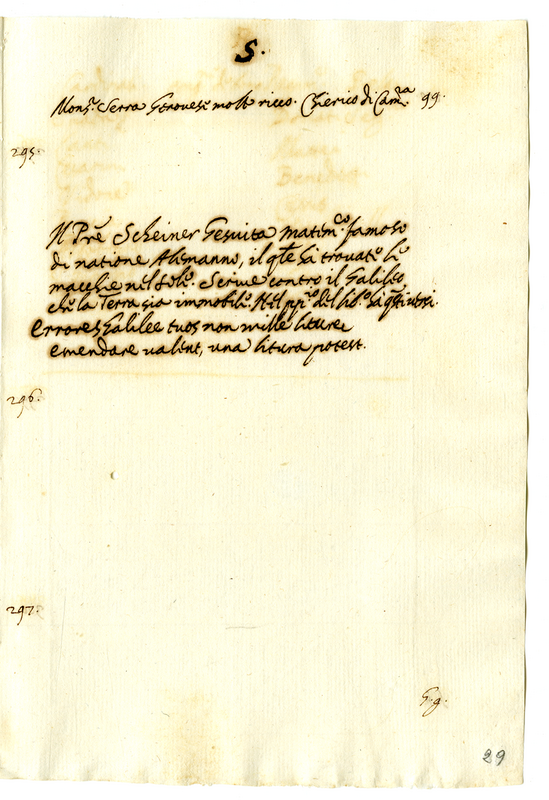 S.
Mons.r Serra Genovese molto ricco. Chierico di Cam.ra 99.
295.
Il Prẽ Scheiner Gesuita matem.co famoso
di natione Alemanno, il q̃le ha trovato le
macchie nel sole. Scrive contro il Galileo,
che la Terra sia immobile. Nel pp.o del lib.o ha q̃sti versi.
Errores Galilee tuos non mille liturae
emendare valent, una litura potest.
296.
297.
29